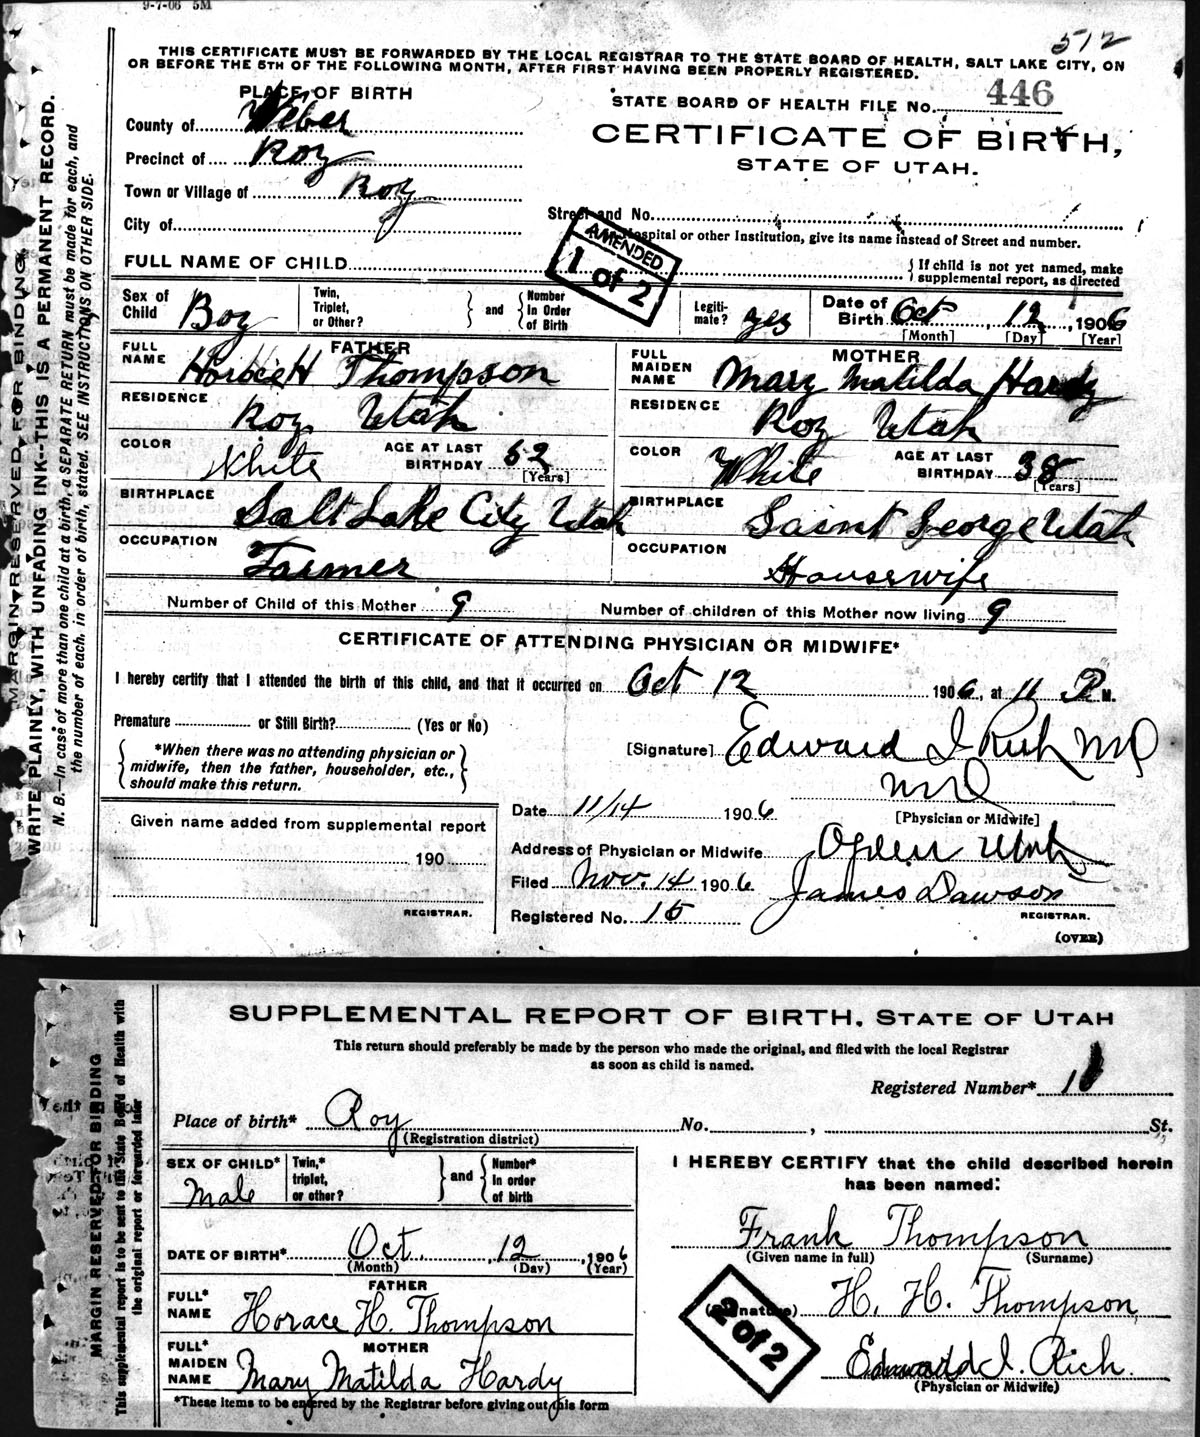 9-7-06 5M
512
THIS CERTIFICATE MUST BE FORWARDED BY THE LOCAL REGISTRAR TO THE STATE BOARD OF HEALTH, SALT LAKE CITY, ON
OR BEFORE THE 5TH OF THE FOLLOWING MONTH, AFTER FIRST HAVING BEEN PROPERLY REGISTERED.
PLACE OF BIRTH
STATE BOARD OF HEALTH FILE No. 446
County of Weber
CERTIFICATE OF BIRTH,
Precinct of Roy
STATE OF UTAH.
Town or Village of Roy
Street and No.
City of
Hospital or other Institution, give its name instead of Street and number.
AMENDED
1 of 2
FULL NAME OF CHILD
{ If child is not yet named, make
supplemental report, as directed
Sex of Child Boy
Twin, Triplet, or Other? } and { Number In Order of Birth
Legiti-mate? yes
Date of Birth Oct, 12, 1906
[Month] [Day] [Year]
FATHER
FULL NAME Horace H Thompson
RESIDENCE Roy Utah
COLOR White AGE AT LAST BIRTHDAY 52 [Years]
BIRTHPLACE Salt Lake City Utah
OCCUPATION Farmer
MOTHER
FULL MAIDEN NAME Mary Matilda Hardy
RESIDENCE Roy Utah
COLOR White AGE AT LAST BIRTHDAY 38 [Years]
BIRTHPLACE Saint George Utah
OCCUPATION Housewife
Number of Child of this Mother 9 Number of children of this Mother now living 9
CERTIFICATE OF ATTENDING PHYSICIAN OR MIDWIFE*
I hereby certify that I attended the birth of this child, and that it occurred on Oct 12 1906, at 11 P M.
Premature or Still Birth? (Yes or No)
{ *When there was no attending physician or
midwife, then the father, householder, etc.,
should make this return. }
[Signature] Edward I Rich MD
MD
[Physician or Midwife]
Date 11/14 1906
Address of Physician or Midwife Ogden Utah
Filed Nov. 14 1906 James Dawson
Registered No. 15 REGISTRAR.
(OVER)
Given name added from supplemental report
190
REGISTRAR.
MARGIN RESERVED FOR BINDING.
WRITE PLAINLY, WITH UNFADING INK--THIS IS A PERMANENT RECORD.
N. B.—In case of more than one child at a birth, a SEPARATE RETURN must be made for each, and
the number of each, in order of birth, stated. SEE INSTRUCTIONS ON OTHER SIDE.
SUPPLEMENTAL REPORT OF BIRTH, STATE OF UTAH
This return should preferably be made by the person who made the original, and filed with the local Registrar
as soon as child is named.
Registered Number*
Place of birth* Roy No. , St.
(Registration district)
SEX OF CHILD* Male
Twin,* triplet, or other? } and { Number* In order of birth
DATE OF BIRTH* Oct. , 12 , 1906
(Month) (Day) (Year)
FATHER
FULL* NAME Horace H. Thompson
MOTHER
FULL* MAIDEN NAME Mary Matilda Hardy
*These items to be entered by the Registrar before giving out this form
I HEREBY CERTIFY that the child described herein
has been named:
Frank Thompson
(Given name in full) (Surname)
(Signature) H. H. Thompson
2 of 2
Edward I. Rich.
(Physician or Midwife)
MARGIN RESERVED FOR BINDING
This supplemental report is to be sent to the State Board of Health with
the original report or forwarded later